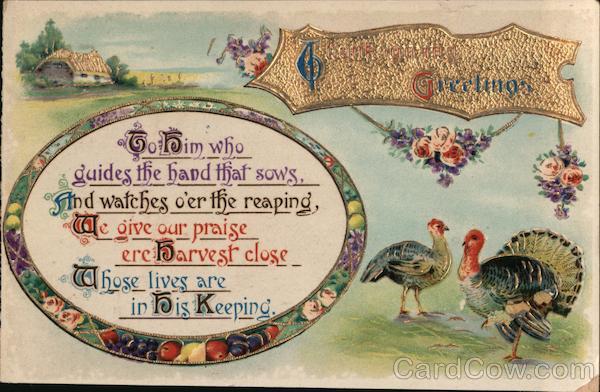 Thanksgiving
Greetings
To Him who
guides the hand that sows,
And watches o'er the reaping,
We give our praise
ere Harvest close
Whose lives are
in His Keeping.
CardCow.com